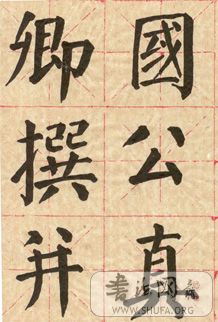 國公真
卿撰并
書法网
WWW.SHUFA.ORG